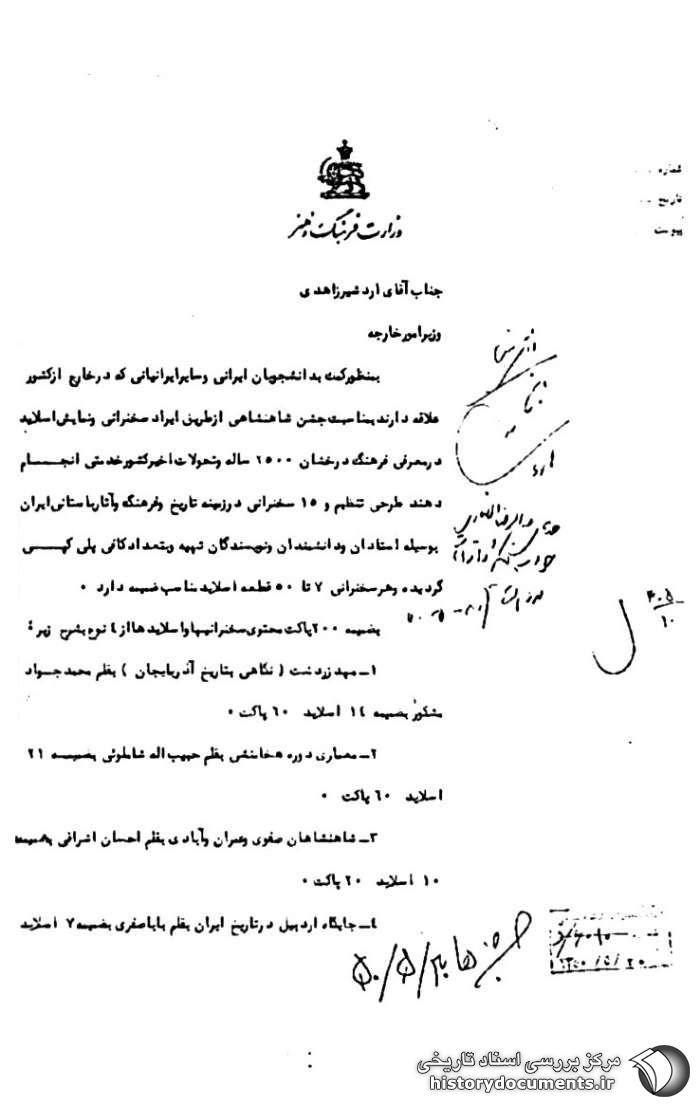 شماره
تاریخ
پیوست
وزارت فرهنگ و هنر
جناب آقای اردشیر زاهدی
وزیر امور خارجه
بمنظور کمک بدانشجویان ایرانی و سایر ایرانیانی که در خارج از کشور
علاقه دارند بمناسبت جشن شاهنشاهی از طریق ایراد سخنرانی و نمایش اسلاید
در معرفی فرهنگ درخشان ۲۵۰۰ ساله و تحولات اخیر کشور خدمتی انجام
دهند طرحی تنظیم و ۱۵ سخنرانی در زمینه تاریخ و فرهنگ و آثار باستانی ایران
بوسیله استادان و دانشمندان و نویسندگان تهیه و بتعداد کافی پلی کپی
گردیده و هر سخنرانی ۷ تا ۵۰ قطعه اسلاید مناسب ضمیمه دارد ۰
بضمیمه ۲۰۰ پاکت محتوی سخنرانیها و اسلایدها از ٤ نوع بشرح زیر :
۱ـ مهد زردشت ( نگاهی بتاریخ آذربایجان ) بقلم محمد جواد
مشکور بضمیمه ۱٤ اسلاید ٦۰ پاکت ۰
۲ـ معماری دوره هخامنشی بقلم حبیب اله شاملوئی بضمیمه ۲۱
اسلاید ٦۰ پاکت ۰
۳ـ شاهنشاهان صفوی و عمران و آبادی بقلم احسان اشراقی بضمیمه
۱۰ اسلاید ۲۰ پاکت ۰
٤ـ جایگاه اردبیل در تاریخ ایران بقلم بابا صفری بضمیمه ۷ اسلاید
جشن ها ۵۰/۵/۳۰
مرکز بررسی اسناد تاریخی
historydocuments.ir